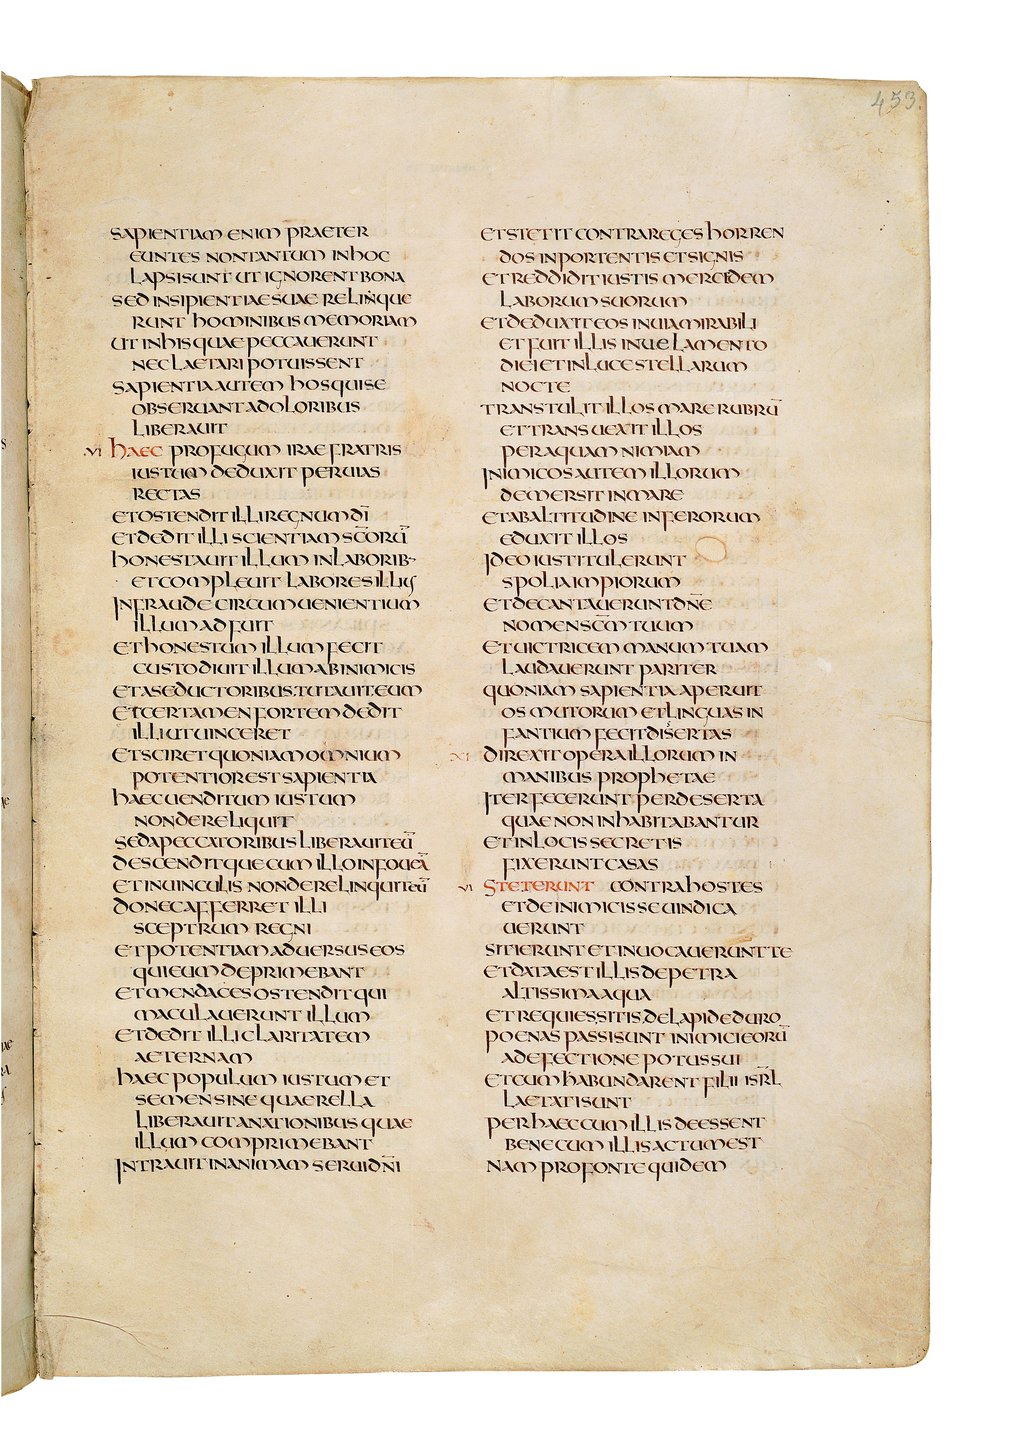 453.
SAPIENTIAM ENIM PRAETER
EUNTES NONTANTUM INHOC
LAPSISUNT UT IGNORENT BONA
SED INSIPIENTIAE SUAE RELINQUE
RUNT HOMINIBUS MEMORIAM
UT INHIS QUAE PECCAUERUNT
NEC LAETARI POTUISSENT
SAPIENTIA AUTEM HOS QUI SE
OBSERUANT A DOLORIBUS
LIBERAUIT
VI HAEC PROFUGUM IRAE FRATRIS
IUSTUM DEDUXIT PER UIAS
RECTAS
ET OSTENDIT ILLI REGNUM DĪ
ET DEDIT ILLI SCIENTIAM SC̄ORŪ
HONESTAUIT ILLUM IN LABORIB·
ET COMPLEUIT LABORES ILLIUS
IN FRAUDE CIRCUMUENIENTIUM
ILLUM ADFUIT
ET HONESTUM ILLUM FECIT
CUSTODIUIT ILLUM AB INIMICIS
ET A SEDUCTORIBUS TUTAUIT EUM
ET CERTAMEN FORTEM DEDIT
ILLI UT UINCERET
ET SCIRET QUONIAM OMNIUM
POTENTIOR EST SAPIENTIA
HAEC UENDITUM IUSTUM
NON DERELIQUIT
SED A PECCATORIBUS LIBERAUIT EŪ
DESCENDITQUE CUM ILLO IN FOUEĀ
ET IN UINCULIS NON DERELINQUIT EŪ
DONEC AFFERRET ILLI
SCEPTRUM REGNI
ET POTENTIAM ADUERSUS EOS
QUI EUM DEPRIMEBANT
ET MENDACES OSTENDIT QUI
MACULAUERUNT ILLUM
ET DEDIT ILLI CLARITATEM
AETERNAM
HAEC POPULUM IUSTUM ET
SEMEN SINE QUAERELLA
LIBERAUIT A NATIONIBUS QUAE
ILLUM COMPRIMEBANT
INTRAUIT IN ANIMAM SERUI DN̄I
ET STETIT CONTRA REGES HORREN
DOS IN PORTENTIS ET SIGNIS
ET REDDIDIT IUSTIS MERCEDEM
LABORUM SUORUM
ET DEDUXIT EOS IN UIA MIRABILI
ET FUIT ILLIS IN UELAMENTO
DIEI ET IN LUCE STELLARUM
NOCTE
TRANSTULIT ILLOS MARE RUBRŪ
ET TRANSUEXIT ILLOS
PER AQUAM NIMIAM
INIMICOS AUTEM ILLORUM
DEMERSIT IN MARE
ET AB ALTITUDINE INFERORUM
EDUXIT ILLOS
IDEO IUSTI TULERUNT
SPOLIA IMPIORUM
ET DECANTAUERUNT DN̄E
NOMEN SC̄M TUUM
ET UICTRICEM MANUM TUAM
LAUDAUERUNT PARITER
QUONIAM SAPIENTIA APERUIT
OS MUTORUM ET LINGUAS IN
FANTIUM FECIT DISERTAS
XI DIREXIT OPERA ILLORUM IN
MANIBUS PROPHETAE
ITER FECERUNT PER DESERTA
QUAE NON INHABITABANTUR
ET IN LOCIS SECRETIS
FIXERUNT CASAS
VI STETERUNT CONTRA HOSTES
ET DE INIMICIS SE UINDICA
UERUNT
SITIERUNT ET INUOCAUERUNT TE
ET DATA EST ILLIS DE PETRA
ALTISSIMA AQUA
ET REQUIES SITIS DE LAPIDE DURO
POENAS PASSI SUNT INIMICI EORŪ
A DEFECTIONE POTUS SUI
ET CUM HABUNDARENT FILII ISR̄L
LAETATI SUNT
PER HAEC CUM ILLIS DEESSENT
BENE CUM ILLIS ACTUM EST
NAM PRO FONTE QUIDEM